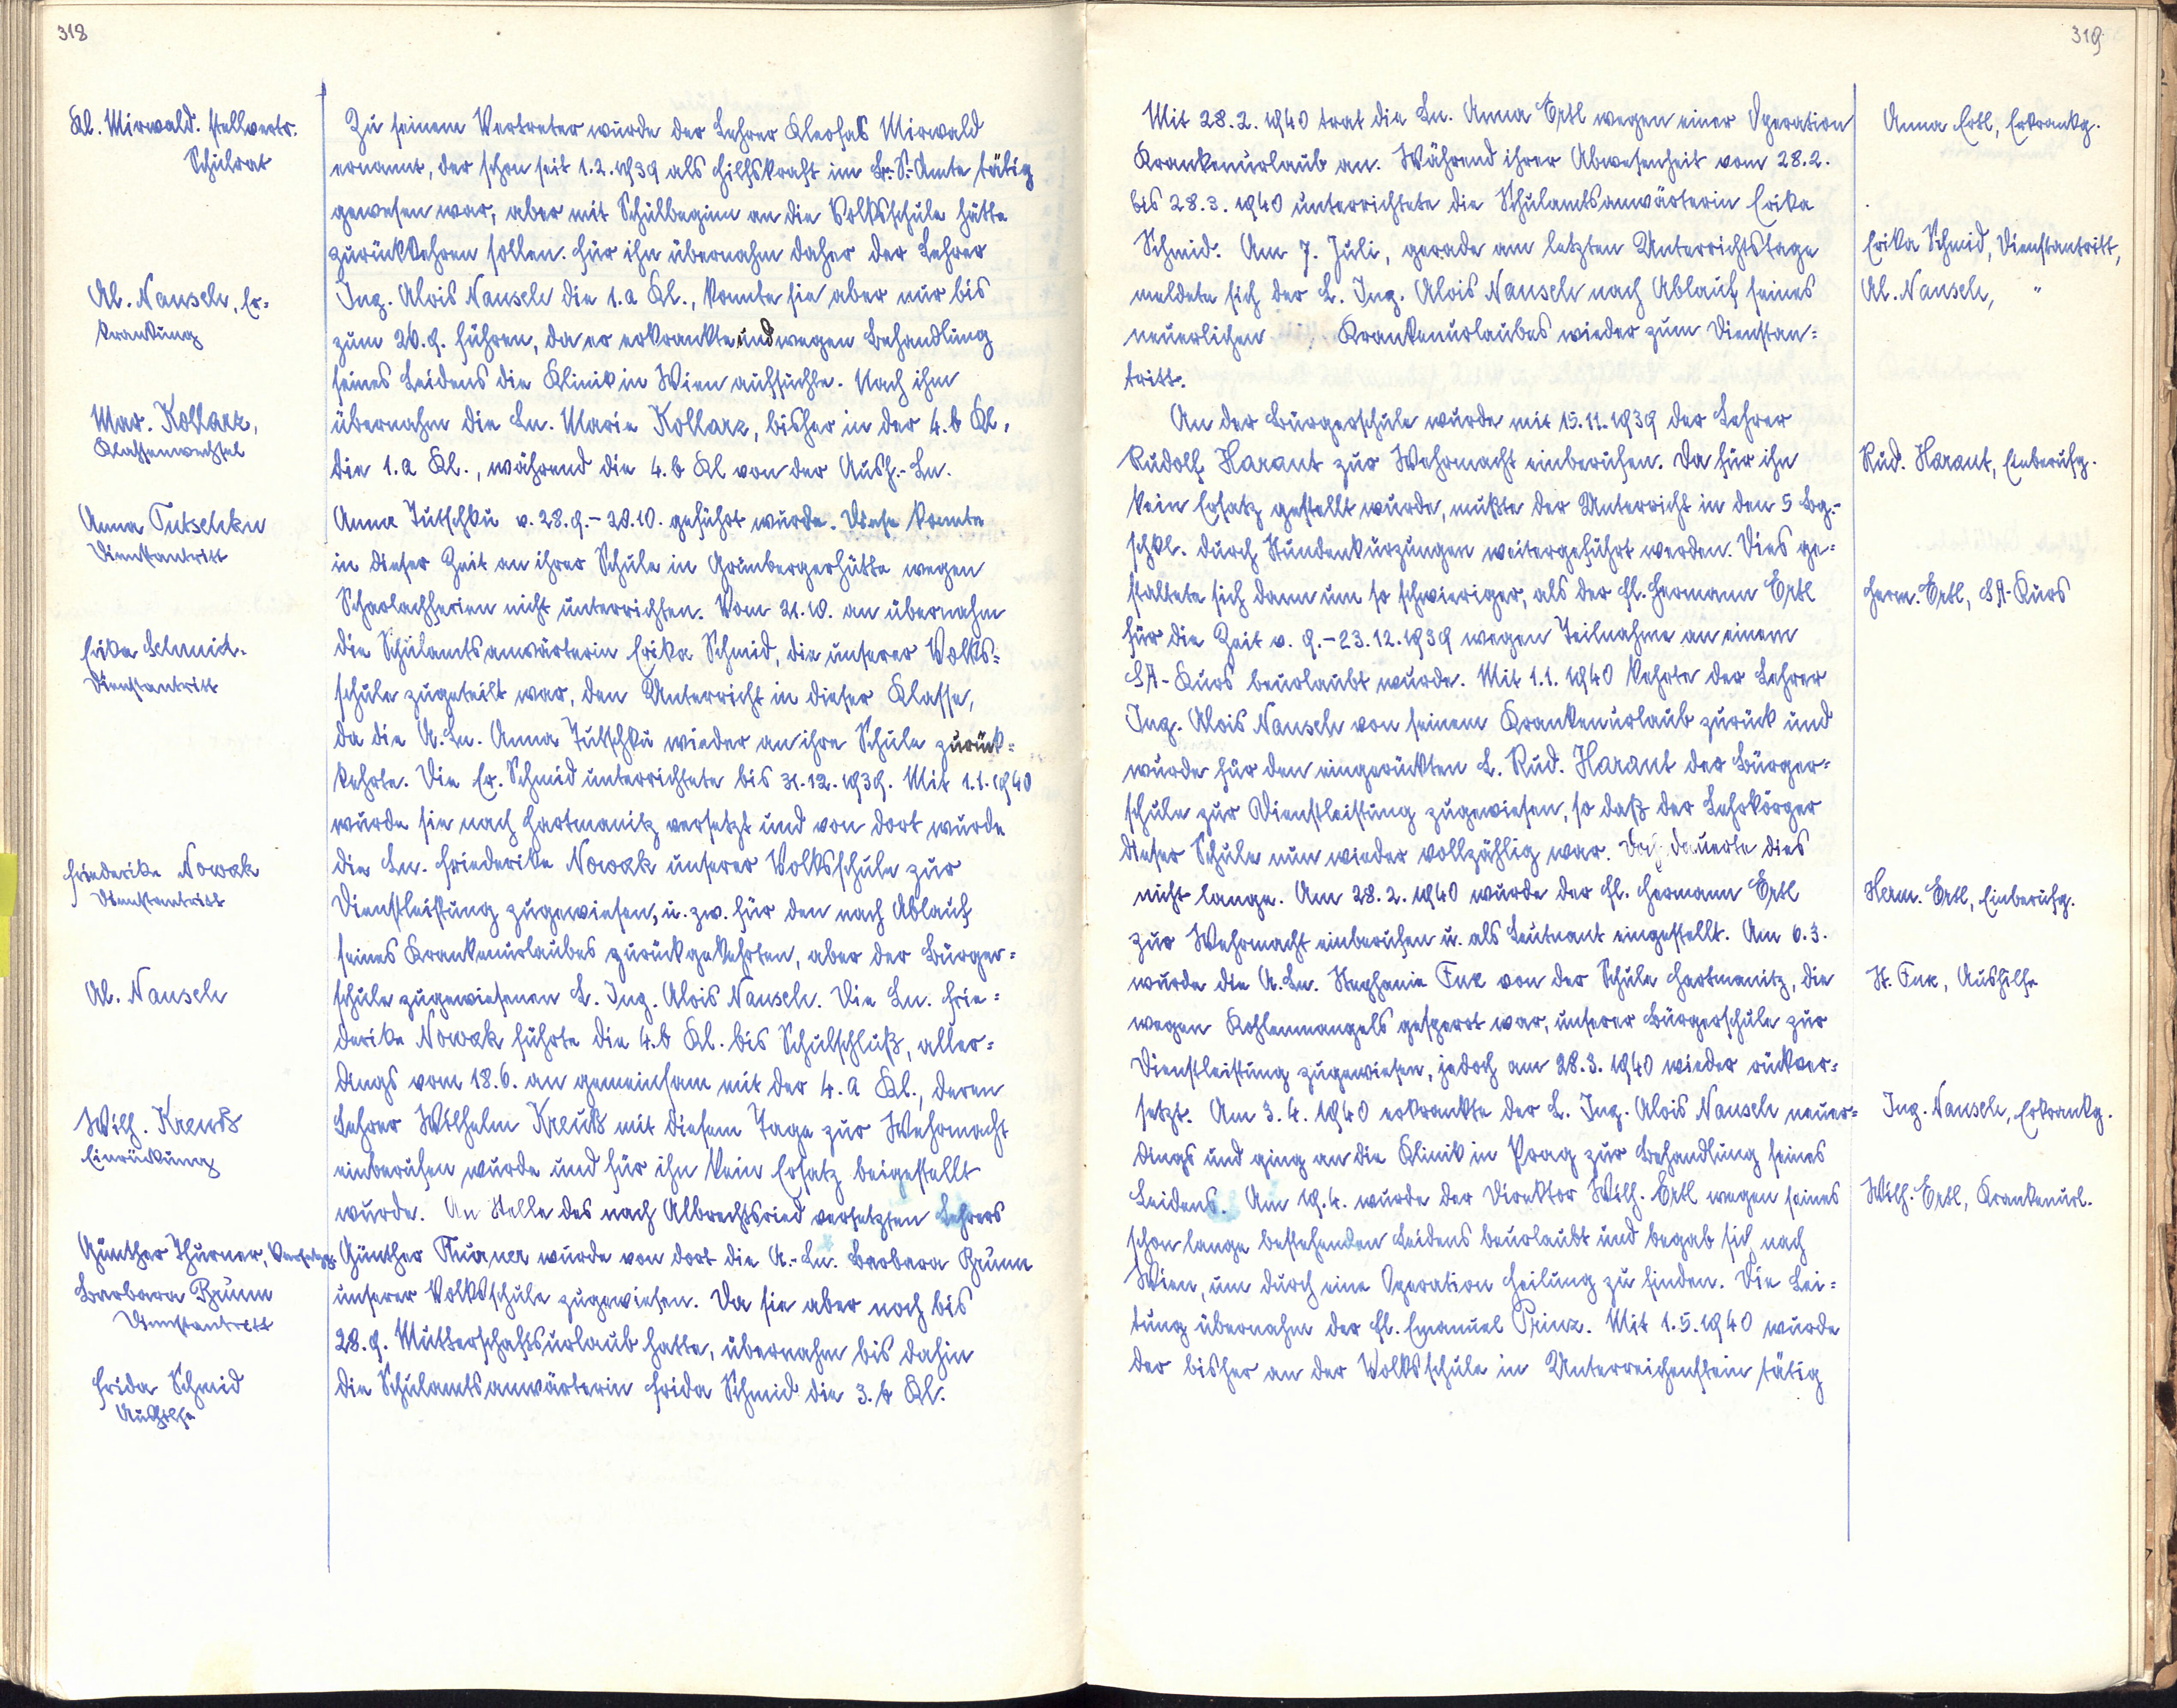 318
Kl. Mirwald. stellvertr.
Schulrat
Zu seinem Vertreter wurde der Lehrer Kleofas Mirwald
ernannt, der schon seit 1.2.1939 als Hilfskraft im Br.-S.-Amte tätig
gewesen war, aber mit Schulbeginn an die Volksschule hätte
zurückkehren sollen. Für ihn übernahm daher der Lehrer
Al. Nausch, Er=
krankung
Ing. Alois Nausch die 1.a Kl., konnte sie aber nur bis
zum 26.9. führen, da er erkrankte und wegen Behandlung
seines Leidens die Klinik in Wien aufsuchte. Nach ihm
Mar. Kollarz,
Klassenwechsel
übernahm die Ln. Marie Kollarz, bisher in der 4.b Kl.,
die 1.a Kl., während die 4.b Kl von der Aush.-Ln.
Anna Tutschku
Dienstantritt
Anna Tutschku v. 28.9.-20.10. geführt wurde. Diese konnte
in dieser Zeit an ihrer Schule in Grünbergerhütte wegen
Scharlachferien nicht unterrichten. Vom 21.10. an übernahm
Erika Schmid.
Dienstantritt
die Schulamtsanwärterin Erika Schmid, die unserer Volks=
schule zugeteilt war, den Unterricht in dieser Klasse,
da die A.Ln. Anna Tutschku wieder an ihre Schule zurück=
kehrte. Die Er. Schmid unterrichtete bis 31.12.1939. Mit 1.1.1940
wurde sie nach Hartmanitz versetzt und von dort wurde
Friederike Nowak
Dienstantritt
die Ln. Friederike Nowak unserer Volksschule zur
Dienstleistung zugewiesen, u. zw. für den nach Ablauf
seines Krankenurlaubes zurückgekehrten, aber der Bürger=
Al. Nausch
schule zugewiesenen L. Ing. Alois Nausch. Die Ln. Frie=
derike Nowak führte die 4.b Kl. bis Schulschluß, aller=
dings vom 18.6. an gemeinsam mit der 4.a Kl., deren
Wilh. Kreuß
Einrückung
Lehrer Wilhelm Kreuß mit diesem Tage zur Wehrmacht
einberufen wurde und für ihn kein Ersatz beigestellt
wurde. An Stelle des nach Albrechtsried versetzten Lehrers
Günther Thurner, Versetzg.
Günther Thurner wurde von dort die A.-Ln. Barbara Brunn
Barbara Brunn
Dienstantritt
unserer Volksschule zugewiesen. Da sie aber noch bis
28.9. Mutterschaftsurlaub hatte, übernahm bis dahin
Frida Schmid
Aushilfe
die Schulamtsanwärterin Frida Schmid die 3.b Kl.
319
Mit 28.2.1940 trat die Ln. Anna Ertl wegen einer Operation
Anna Ertl, Erkrankg.
Krankenurlaub an. Während ihrer Abwesenheit vom 28.2.
bis 28.3.1940 unterrichtete die Schulamtsanwärterin Erika
Schmid. Am 7. Juli, gerade am letzten Unterrichtstage
Erika Schmid, Dienstantritt,
meldete sich der L. Ing. Alois Nausch nach Ablauf seines
Al. Nausch, "
neuerlichen Krankenurlaubes wieder zum Dienstan=
tritt.
An der Bürgerschule wurde mit 15.11.1939 der Lehrer
Rudolf Harant zur Wehrmacht einberufen. Da für ihn
Rud. Harant, Einberufg.
kein Ersatz gestellt wurde, mußte der Unterricht in den 5 Bg.-
schkl. durch Stundenkürzungen weitergeführt werden. Dies ge=
staltete sich dann um so schwieriger, als der Fl. Hermann Ertl
Herm. Ertl, SA-Kurs
für die Zeit v. 9.-23.12.1939 wegen Teilnahme an einem
SA-Kurs beurlaubt wurde. Mit 1.1.1940 kehrte der Lehrer
Ing. Alois Nausch von seinem Krankenurlaub zurück und
wurde für den eingerückten L. Rud. Harant der Bürger=
schule zur Dienstleistung zugewiesen, so daß der Lehrkörper
dieser Schule nun wieder vollzählig war. Doch dauerte dies
nicht lange. Am 28.2.1940 wurde der Fl. Hermann Ertl
Herm. Ertl, Einberufg.
zur Wehrmacht einberufen u. als Leutnant eingestellt. Am 6.3.
wurde die A.Ln. Stephanie Fux von der Schule Hartmanitz, die
St. Fux, Aushilfe
wegen Kohlenmangels gesperrt war, unserer Bürgerschule zur
Dienstleistung zugewiesen, jedoch am 28.3.1940 wieder rückver=
setzt. Am 3.4.1940 erkrankte der L. Ing. Alois Nausch neuer=
Ing. Nausch, Erkrankg.
dings und ging an die Klinik in Prag zur Behandlung seines
Leidens. Am 19.4. wurde der Direktor Wilh. Ertl wegen seines
Wilh. Ertl, Krankenurl.
schon lange bestehenden Leidens beurlaubt und begab sich nach
Wien, um durch eine Operation Heilung zu finden. Die Lei=
tung übernahm der Fl. Emanuel Prinz. Mit 1.5.1940 wurde
der bisher an der Volksschule in Unterreichenstein tätig